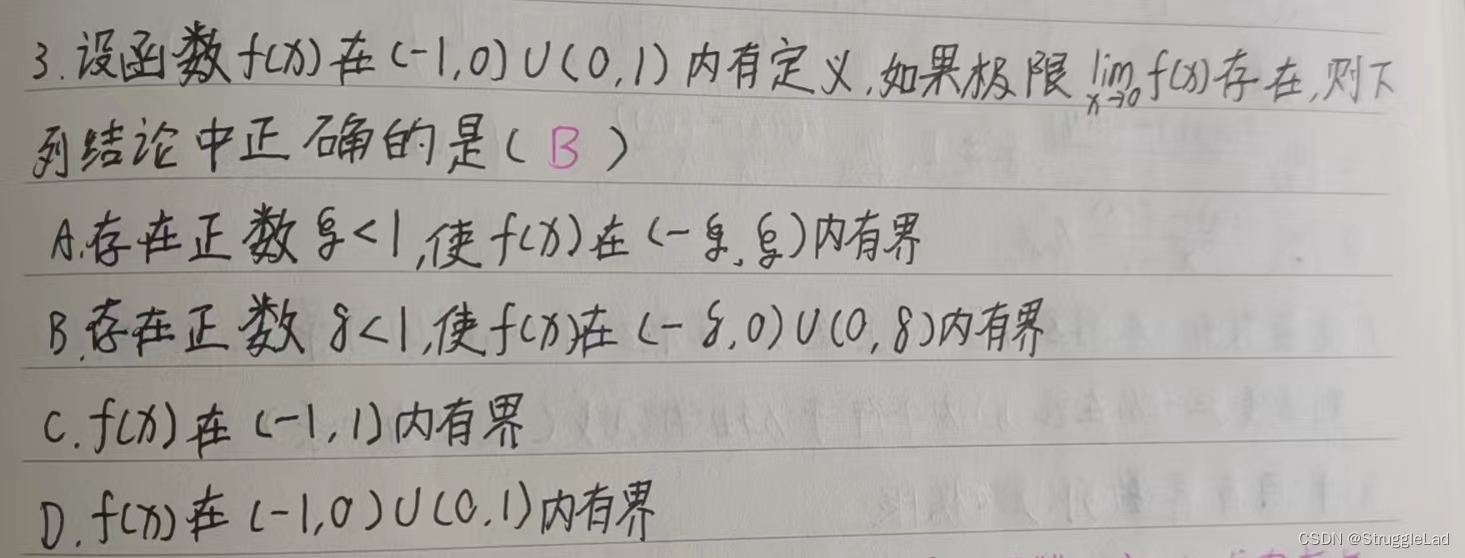 3.设函数f(x)在(-1,0)∪(0,1)内有定义,如果极限lim f(x)存在,则下
x→0
列结论中正确的是( B )
A.存在正数ξ<1,使f(x)在(-ξ,ξ)内有界
B.存在正数δ<1,使f(x)在(-δ,0)∪(0,δ)内有界
C.f(x)在(-1,1)内有界
D.f(x)在(-1,0)∪(0,1)内有界
CSDN @StruggleLad